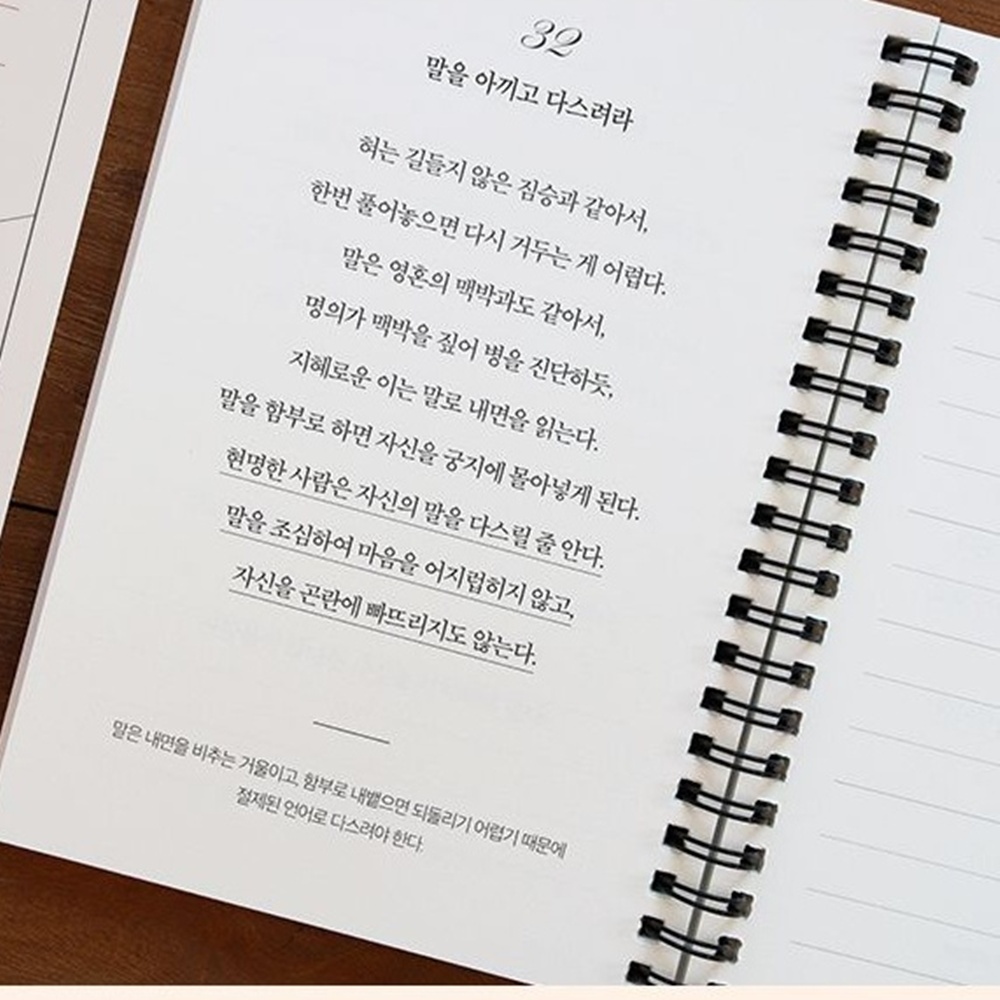 32
말을 아끼고 다스려라
혀는 길들지 않은 짐승과 같아서,
한번 풀어놓으면 다시 거두는 게 어렵다.
말은 영혼의 맥박과도 같아서,
명의가 맥박을 짚어 병을 진단하듯,
지혜로운 이는 말로 내면을 읽는다.
말을 함부로 하면 자신을 궁지에 몰아넣게 된다.
현명한 사람은 자신의 말을 다스릴 줄 안다.
말을 조심하여 마음을 어지럽히지 않고,
자신을 곤란에 빠뜨리지도 않는다.
말은 내면을 비추는 거울이고, 함부로 내뱉으면 되돌리기 어렵기 때문에
절제된 언어로 다스려야 한다.